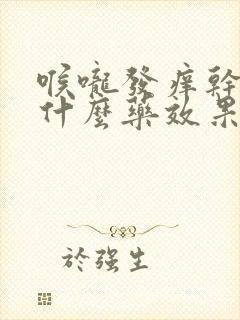 喉嚨發痒幹
什麼藥效果
於强生